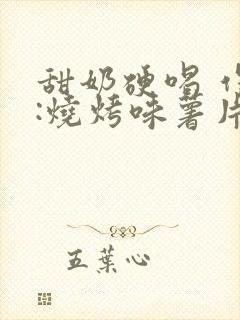 甜奶硬唱
:燒烤味薯片
五葉心